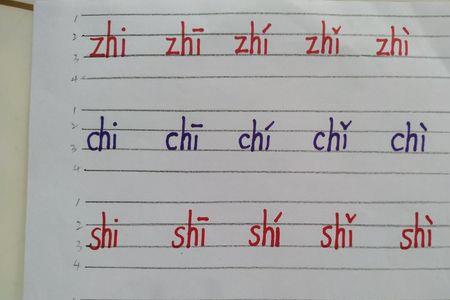 1
2 zhi zhī zhí zhǐ zhì
3
4
1
2 chi chī chí chǐ chì
3
4
1
2 shi shī shí shǐ shì
3
4